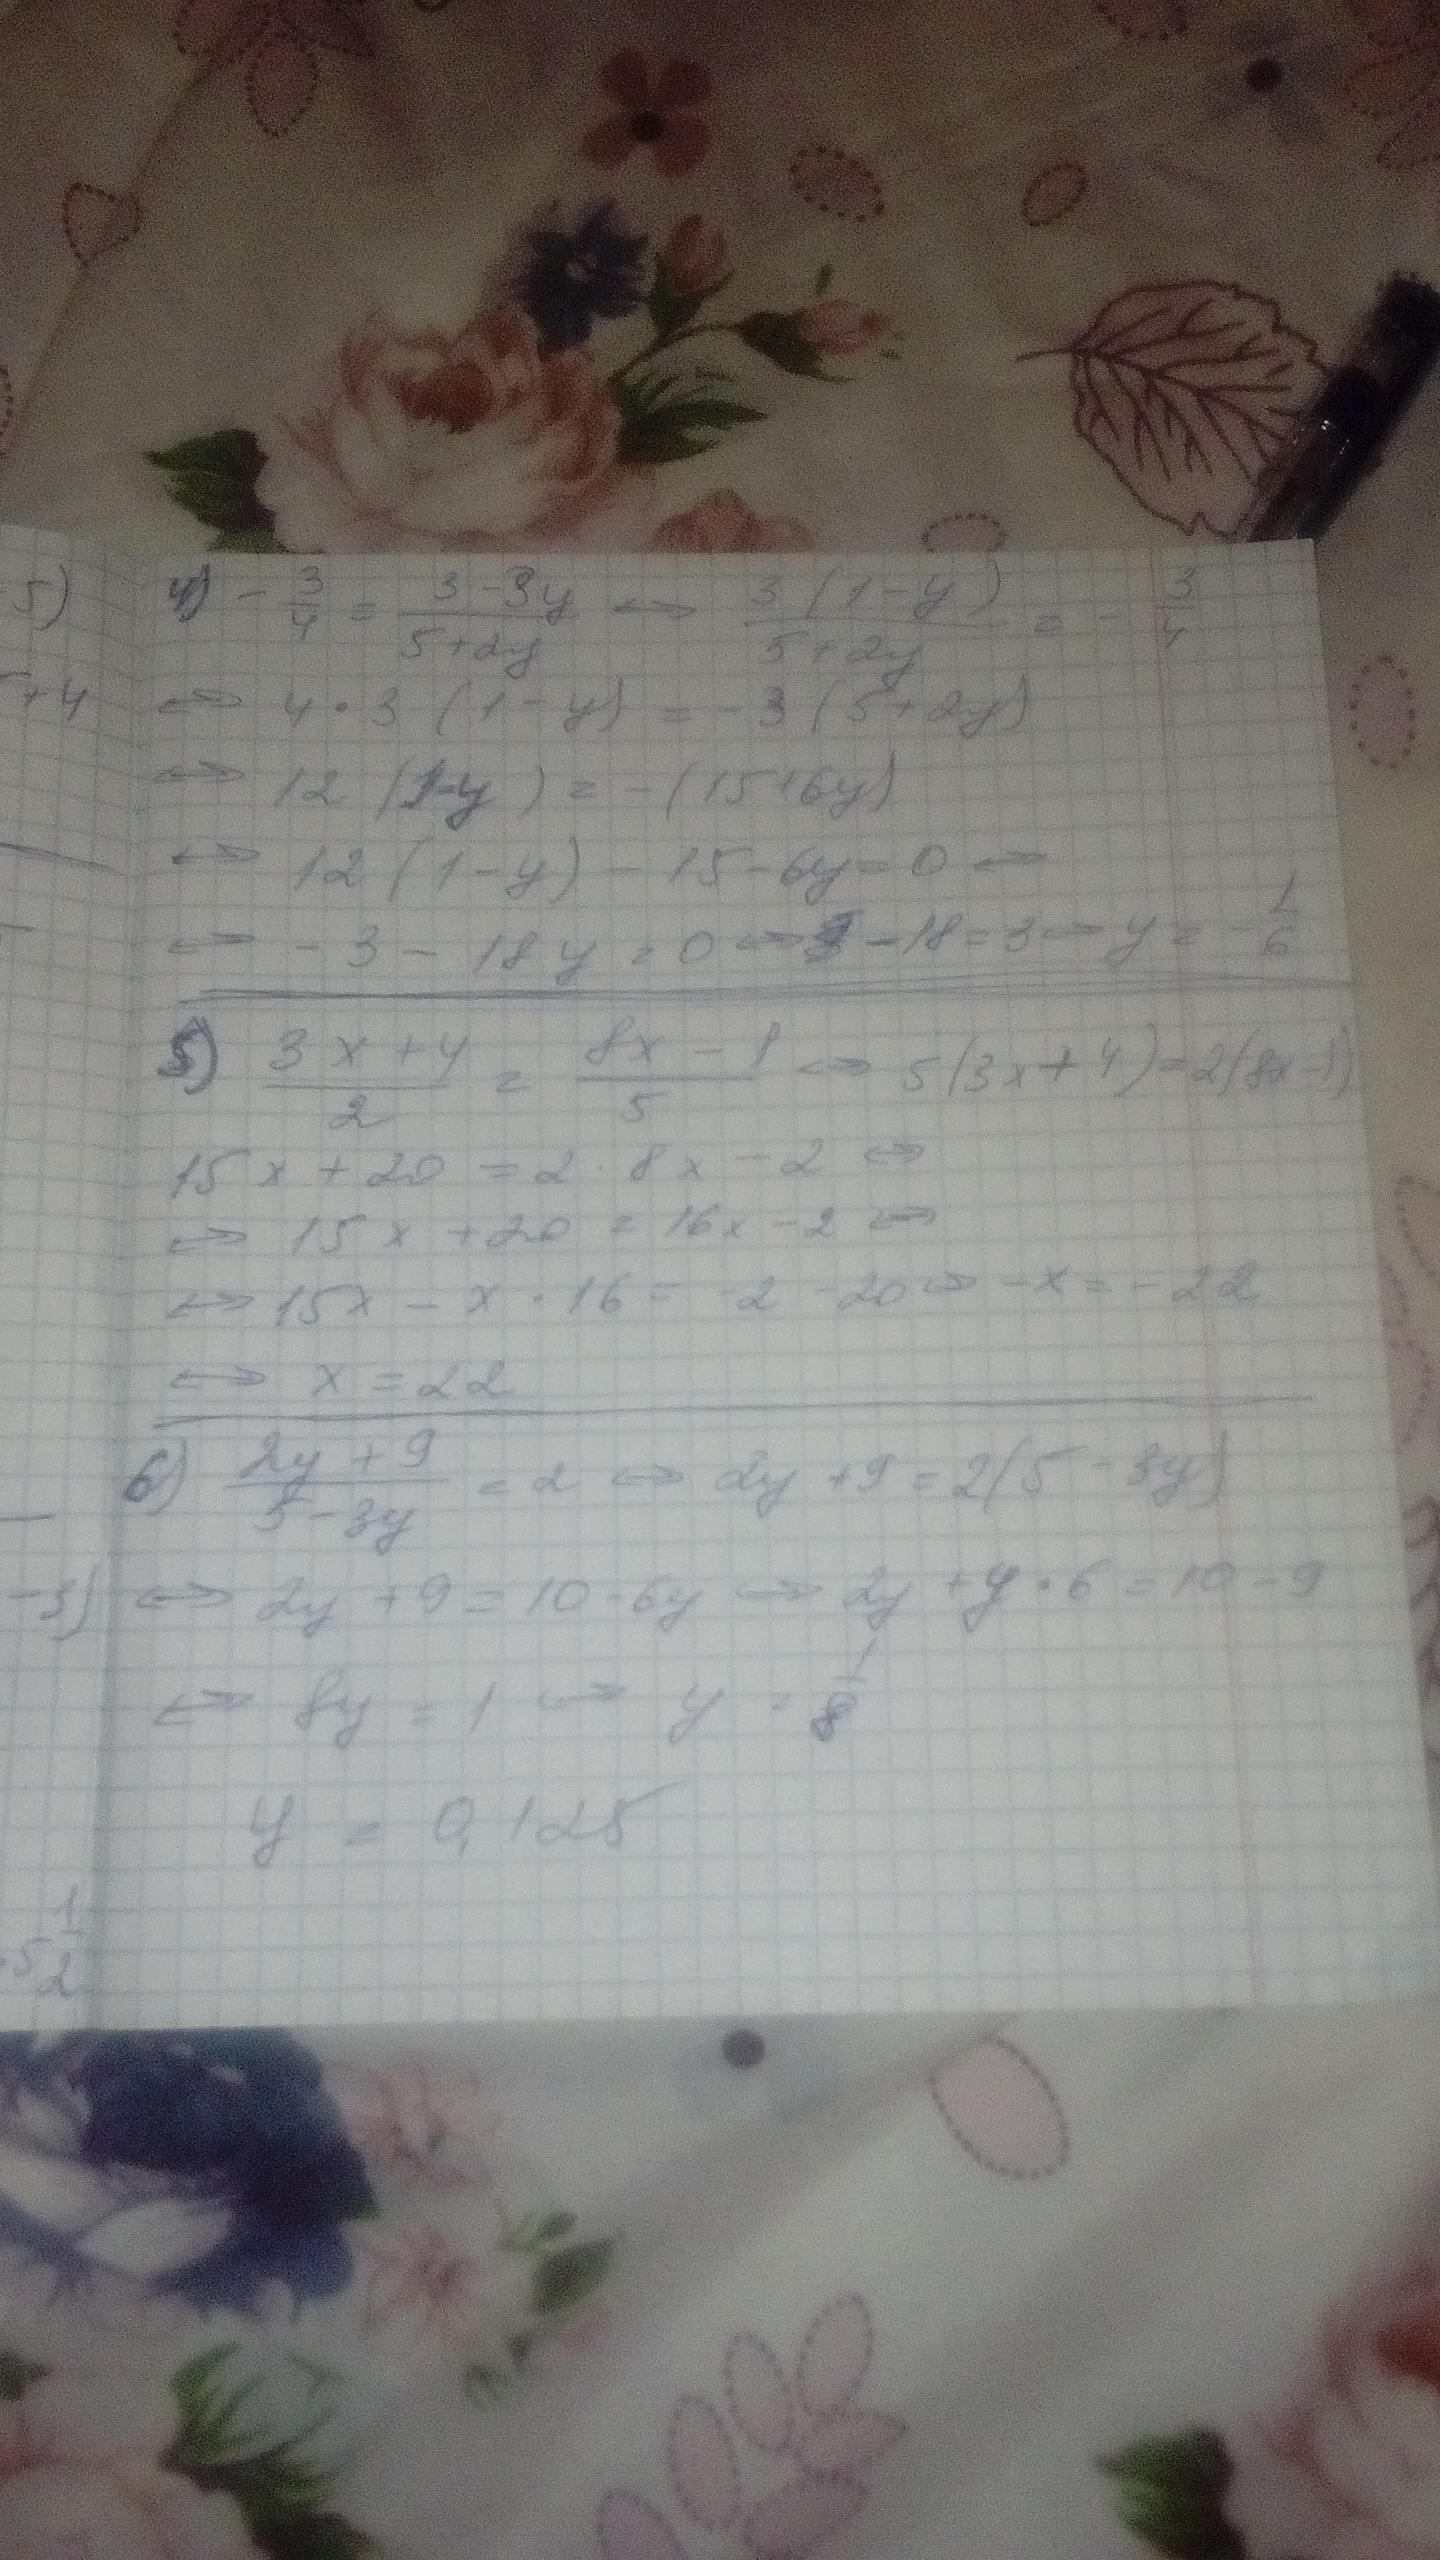 -5)
+4
-3)
5 1/2
4) - 3/4 = (3-3y)/(5+2y) ⇔ 3(1-y)/(5+2y) = - 3/4
⇔ 4·3(1-y) = -3(5+2y)
⇔ 12(1-y) = -(15+6y)
⇔ 12(1-y) - 15 - 6y = 0 ⇔
⇔ -3 - 18y = 0 ⇔ -18 = 3 ⇔ y = - 1/6
5) (3x+4)/2 = (8x-1)/5 ⇔ 5(3x+4) = 2(8x-1)
15x + 20 = 2·8x - 2 ⇔
⇔ 15x + 20 = 16x - 2 ⇔
⇔ 15x - x·16 = -2 - 20 ⇔ -x = -22
⇔ x = 22
6) (2y+9)/(5-3y) = 2 ⇔ 2y + 9 = 2(5-3y)
⇔ 2y + 9 = 10 - 6y ⇔ 2y + y·6 = 10 - 9
⇔ 8y = 1 ⇔ y = 1/8
y = 0,125